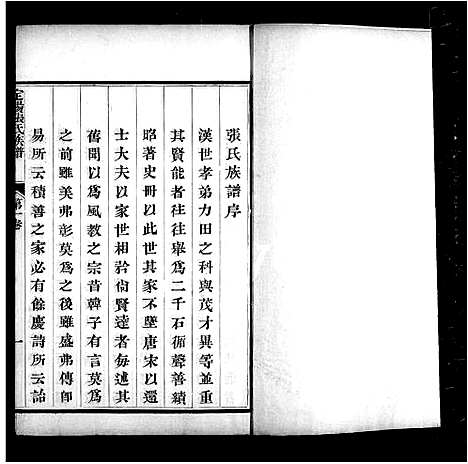 張氏族譜序
漢世孝弟力田之科與茂才異等並重
其賢能者往往舉為二千石循聲善績
昭著史冊以此世其家不墜唐宋以還
士大夫以家世相矜倘賢達者每述其
舊聞以為風教之宗昔韓子有言莫為
之前雖美弗彰莫為之後雖盛弗傳即
易所云積善之家必有餘慶詩所云詒
張氏族譜
第一卷
一